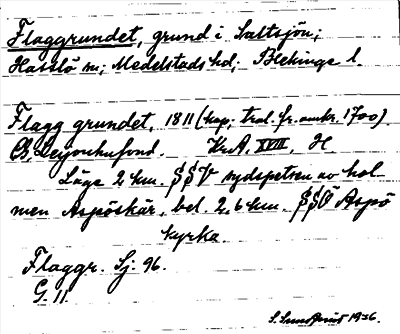 Flaggrundet, grund i Saltsjön,
Hasslö sn; Medelstads hd; Blekinge l.
Flagg grundet, 1811 (kop; trol. fr. omkr. 1700).
B. Leijonhufond. Kr.A. XVIII, H
Läge 2 km. SSV sydspetsen av hol-
men Aspöskär, bel. 2,6 km. SSÖ Aspö
kyrka.
Flaggr. Sj. 96.
G. 11.
S. Sundqvist 1936.